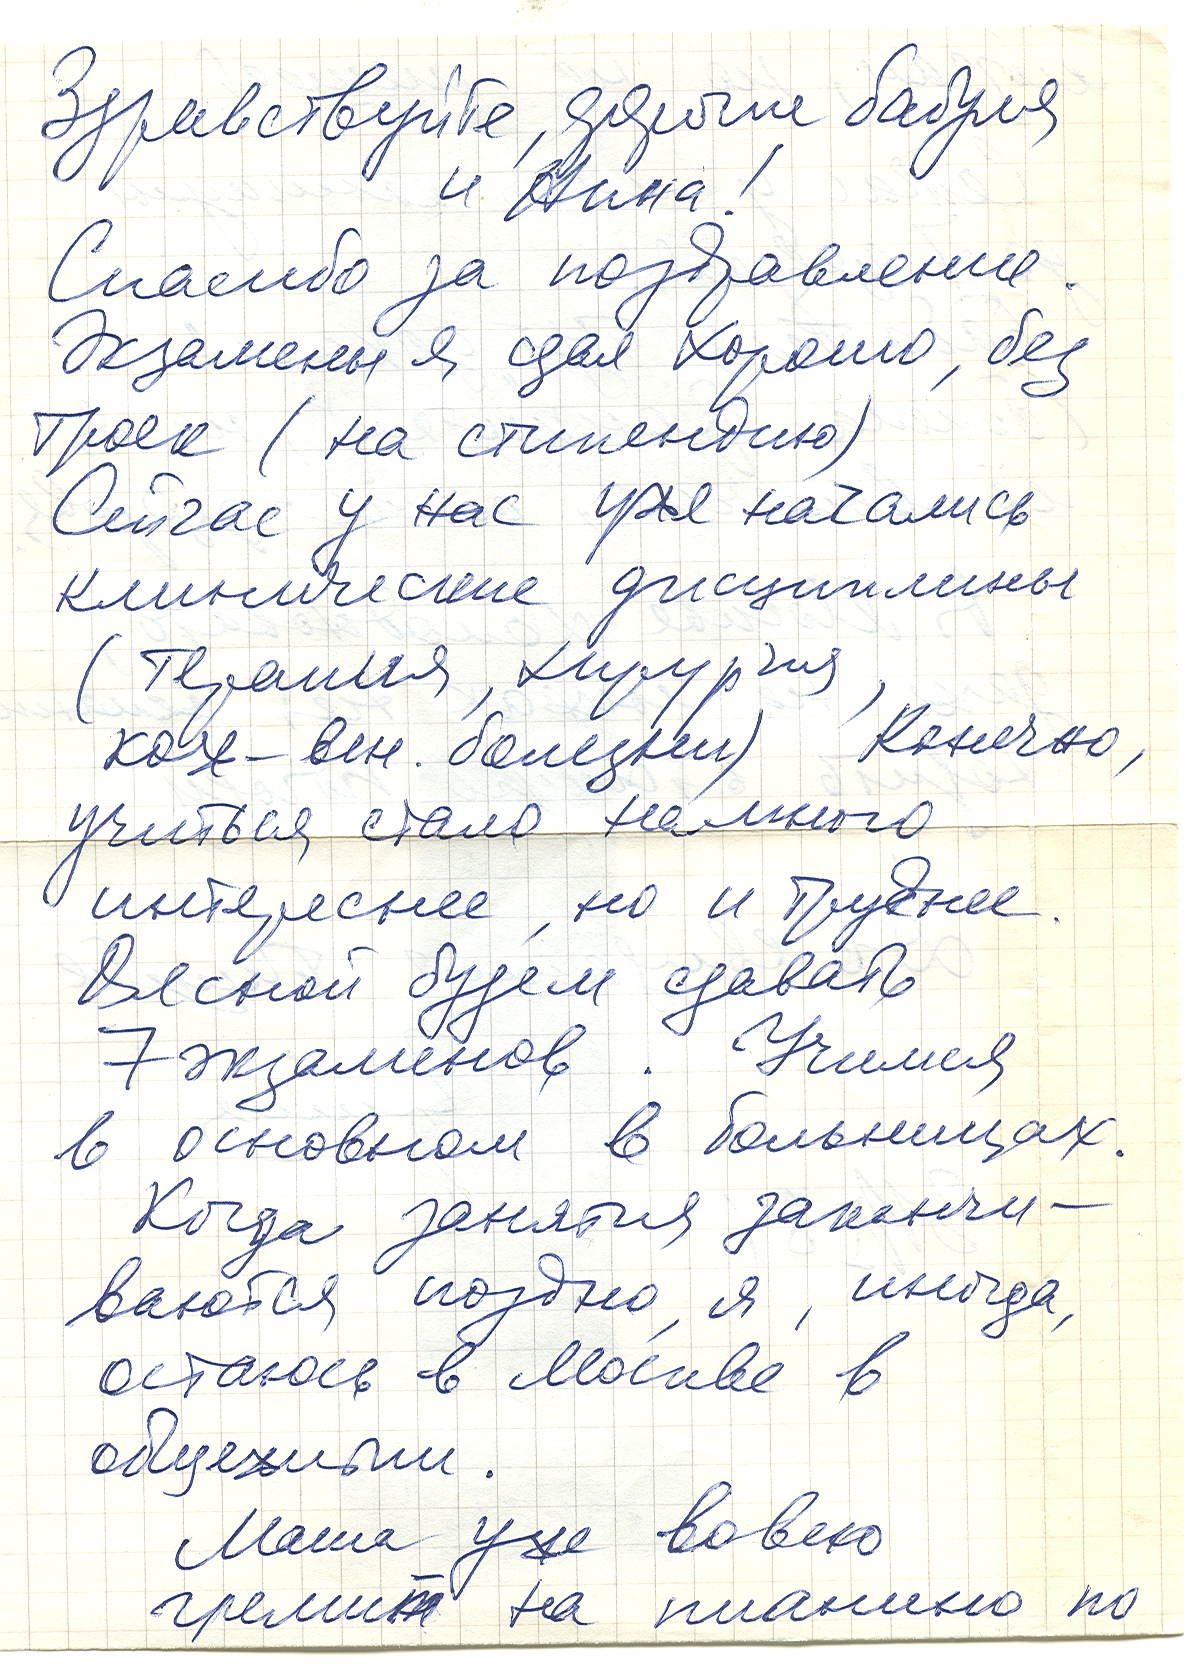 Здравствуйте, дорогие бабуля
и Нина!
Спасибо за поздравление.
Экзамены я сдал хорошо, без
троек (на стипендию)
Сейчас у нас уже начались
клинические дисциплины
(терапия, хирургия,
кож-вен. болезни) Конечно,
учиться стало намного
интереснее, но и труднее.
Весной будем сдавать
7 экзаменов. Учимся
в основном в больницах.
Когда занятия заканчи-
ваются поздно, я, иногда,
остаюсь в Москве в
общежитии.
Маша уже вовсю
гремит на пианино по